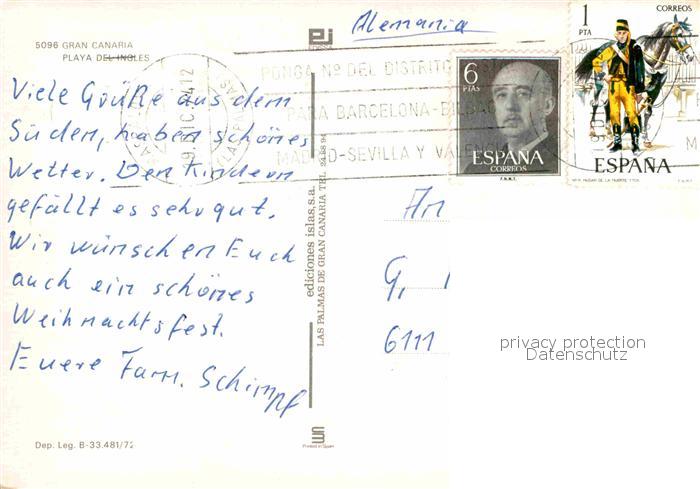 Alemania
5096 GRAN CANARIA
PLAYA DEL INGLES
Viele Grüße aus dem
Süden, haben schönes
Wetter. Den Kindern
gefällt es sehr gut.
Wir wünschen Euch
auch ein schönes
Weihnachtsfest.
Euere Fam. Schimpf
Dep. Leg. B-33.481/72
ediciones islas,s.a.
LAS PALMAS DE GRAN CANARIA TEL.
Printed in Spain
PONGA Nº DEL DISTRITO
PARA BARCELONA-BILBAO
MADRID-SEVILLA Y VALENCIA
6
PTAS
ESPAÑA
CORREOS
F.N.M.T.
1
PTA
CORREOS
ESPAÑA
An
G,
6111
privacy protection
Datenschutz